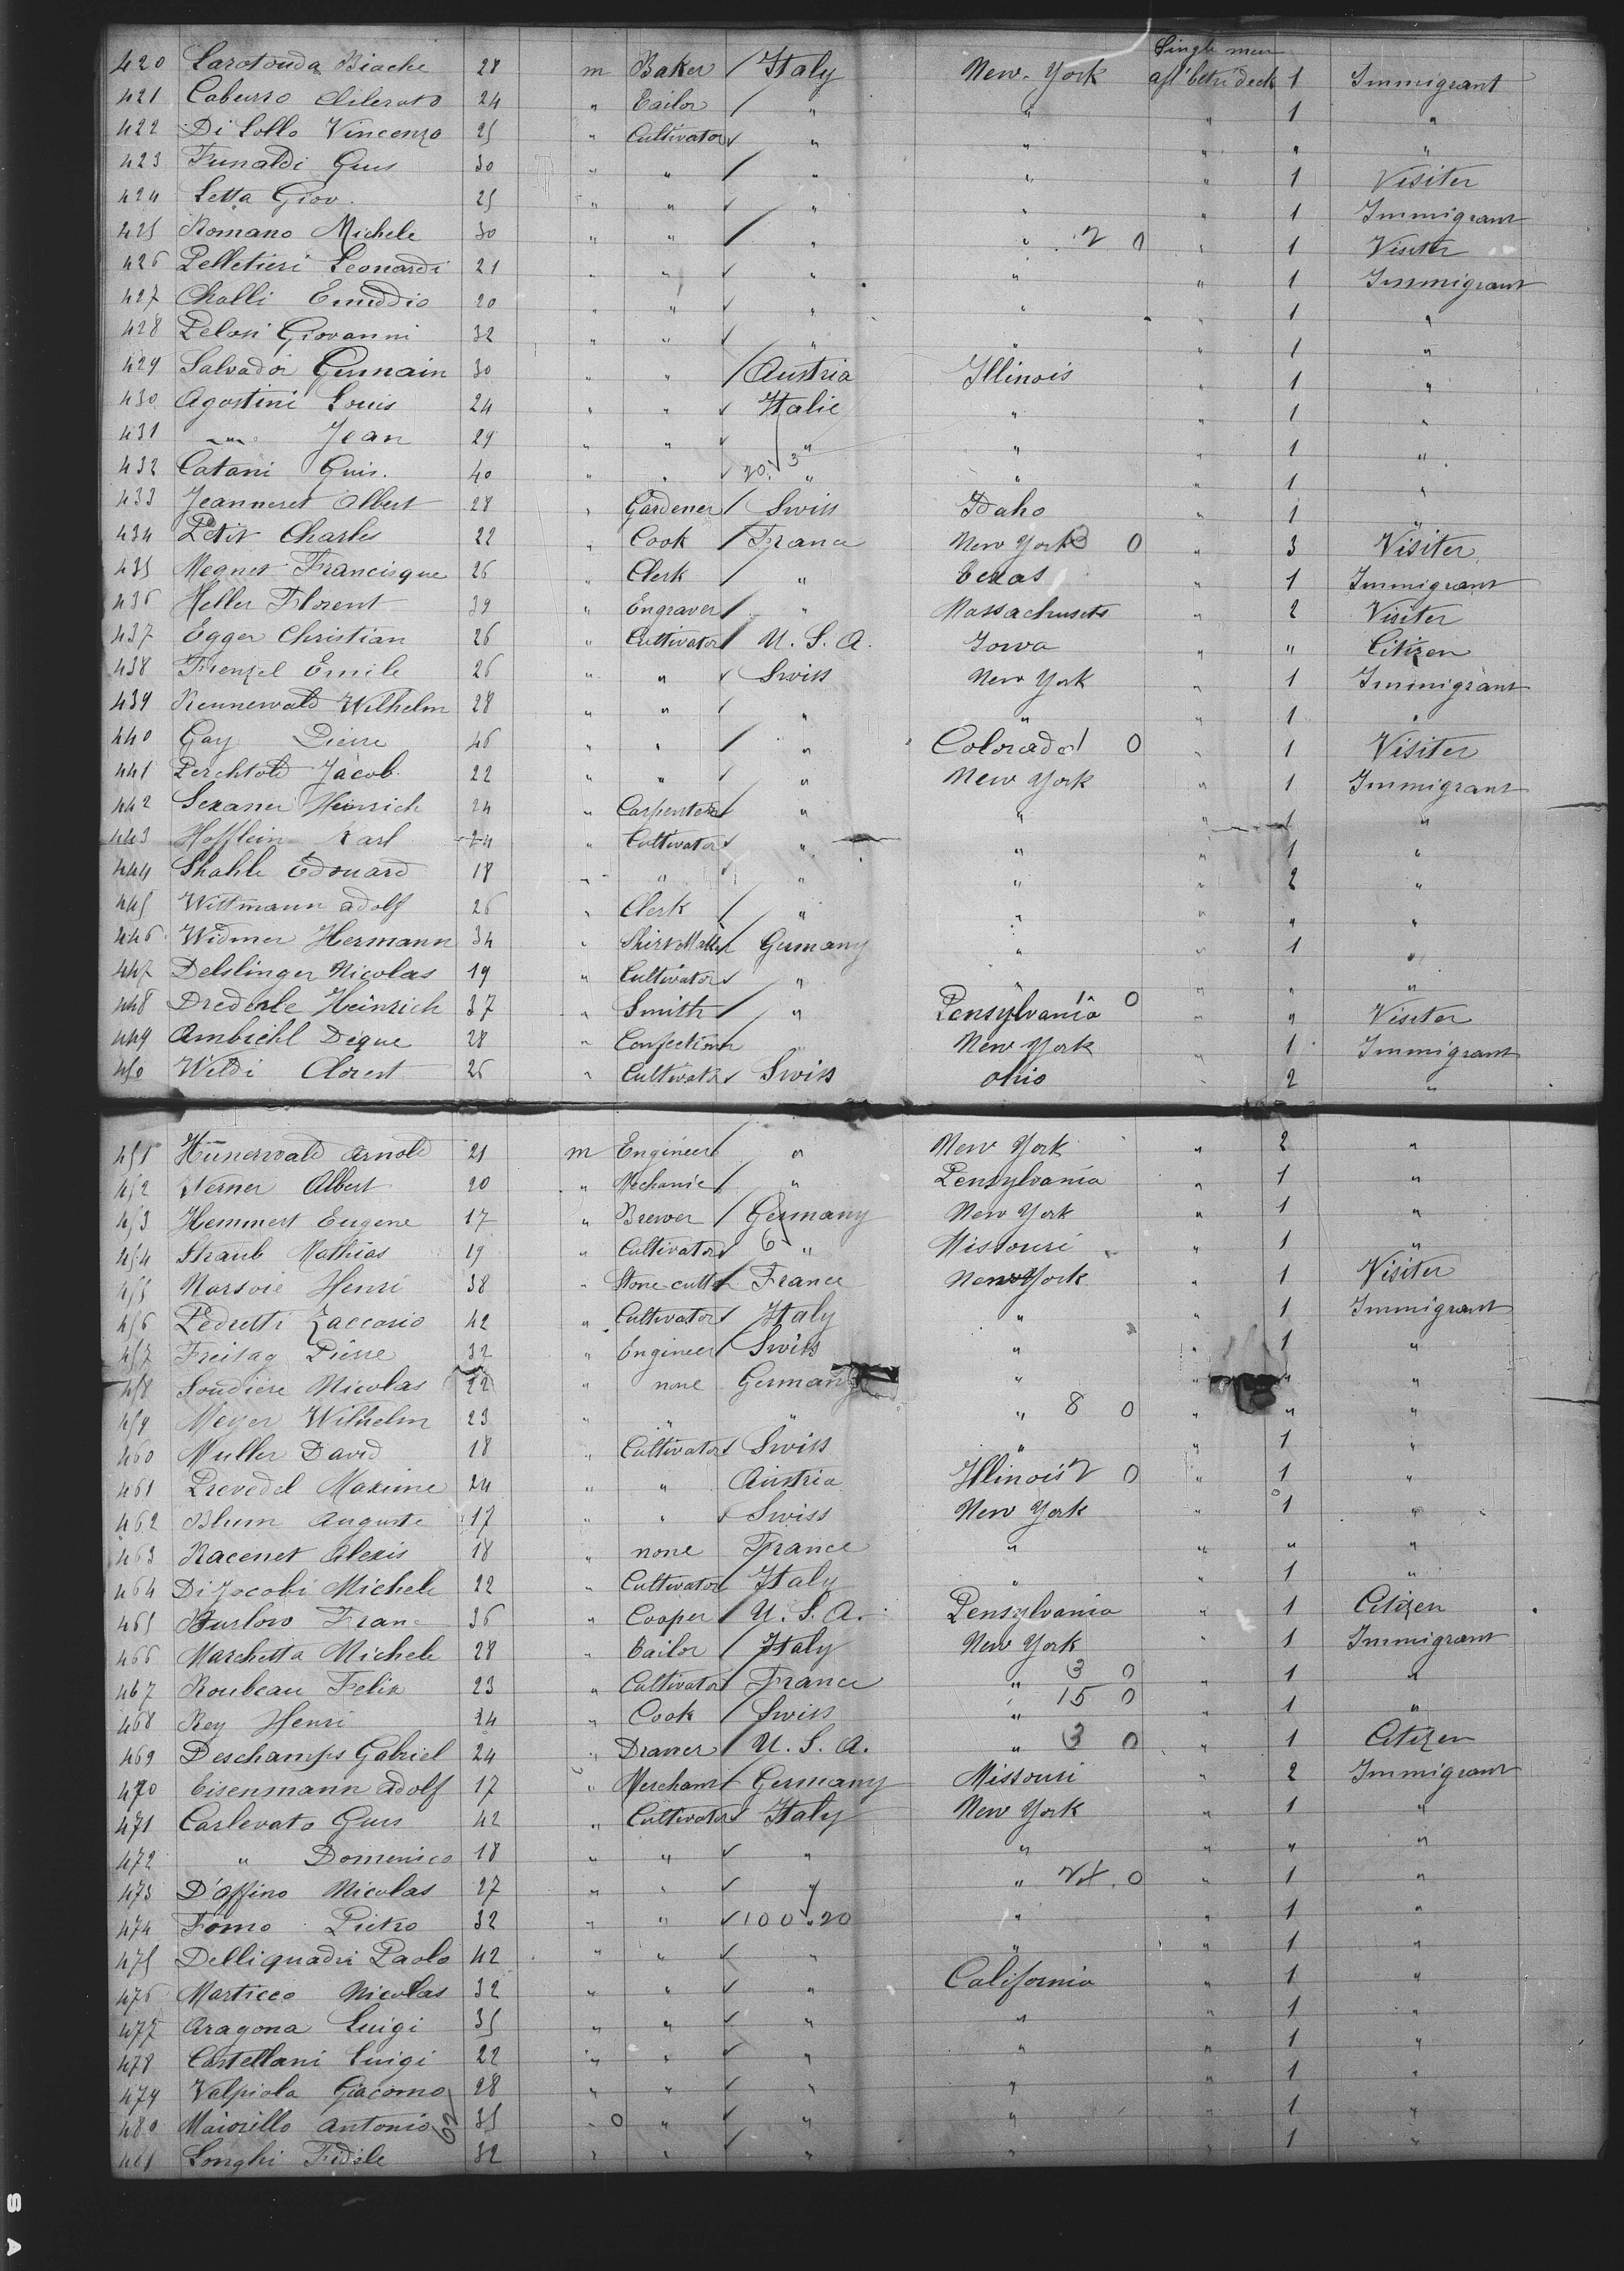 Single men
420 Larotonda Biache 28 m Baker / Italy New-York aft betw deck 1 Immigrant
421 Cabusso Aliberato 24 " Tailor / " " " 1 "
422 Di Lollo Vincenzo 25 " Cultivator ✓ " " " " "
423 Frunaldi Gius 30 " " / " " " 1 Visiter
424 Letta Giov. 25 " " ✓ " " " 1 Immigrant
425 Romano Michele 30 " " / " " 2 0 " 1 Visiter
426 Pelletieri Leonardi 21 " " ✓ " " " 1 Immigrant
427 Challi Emiddio 20 " " ✓ " " " 1 "
428 Pelosi Giovanni 32 " " ✓ " " " 1 "
429 Salvador Germain 30 " " / Austria Illinois " 1 "
430 Agostini Louis 24 " " ✓ Italie " " 1 "
431 " Jean 29 " " ✓ " " " 1 "
432 Catani Guis. 40 " " ✓ 20 3 " " " 1 "
433 Jeanneret Albert 28 " Gardener / Swiss Idaho " 1 "
434 Petit Charles 22 " Cook / France New York 3 0 " 3 Visiter
435 Megnet Francisque 26 " Clerk / " Texas " 1 Immigrant
436 Heller Florent 39 " Engraver / " Massachusets " 2 Visiter
437 Egger Christian 26 " Cultivator / U. S. A. Iowa " " Citizen
438 Frenzel Emile 26 " " ✓ Swiss New York " 1 Immigrant
439 Rennewald Wilhelm 28 " " ✓ " " " 1 "
440 Gay Pierre 46 " " / " Colorado 1 0 " 1 Visiter
441 Perchtold Jacob 22 " " ✓ " New York " 1 Immigrant
442 Sexaner Heinrich 24 " Carpenter / " " " 1 "
443 Hofflein Karl 24 " Cultivator ✓ " " " 1 "
444 Shahle Edouard 18 " " ✓ " " " 2 "
445 Wittmann Adolf 26 " Clerk / " " " " "
446 Widmer Hermann 34 " / Germany " " 1 "
447 Delslinger Nicolas 19 " Cultivator ✓ " " " " "
448 Drederle Heinrich 37 " Smith / " Pensylvania 1 0 " " Visiter
449 Ambiehl Dique 28 " Confection " New York " 1 Immigrant
450 Wildi Clorest 26 " Cultivator ✓ Swiss Ohio " 2 "
451 Hünerwald Arnold 21 m Engineer / " New York " 2 "
452 Werner Albert 20 " Mechanic / " Pensylvania " 1 "
453 Hemmert Eugene 17 " Brewer / Germany New York " 1 "
454 Straub Mathias 19 " Cultivator ✓ 6 " Missouri " 1 "
455 Marsoie Henri 38 " Stone-cutter / France New York " 1 Visiter
456 Pedretti Zaccario 42 " Cultivator ✓ Italy " " 1 Immigrant
457 Freitag Pierre 32 " Engineer / Swiss " " 1 "
458 Soudiere Nicolas 22 " none Germany " " " "
459 Meyer Wilhelm 23 " " " " 8 0 " " "
460 Muller David 18 " Cultivator ✓ Swiss " " 1 "
461 Prevedel Maxime 24 " " Austria Illinois 2 0 " 1 "
462 Blum Auguste 17 " " ✓ Swiss New York " 1 "
463 Racenet Alexis 18 " none France " " " "
464 Di Jacobi Michele 22 " Cultivator / Italy " " 1 "
465 Burlow Franc 36 " Cooper / U. S. A. Pensylvania " 1 Citizen
466 Marchetta Michele 28 " Tailor / Italy New York " 1 Immigrant
467 Roubeau Felix 23 " Cultivator / France " 3 0 " 1 "
468 Rey Henri 24 " Cook / Swiss " 15 0 " 1 "
469 Deschamps Gabriel 24 " Drawer / U. S. A. " 3 0 " 1 Citizen
470 Eisenmann Adolf 17 " Merchant Germany Missouri " 2 Immigrant
471 Carlevato Gius 42 " Cultivator ✓ Italy New York " 1 "
472 " Domenico 18 " " ✓ " " " " "
473 D'affino Nicolas 27 " " ✓ " " 0 " 1 "
474 Fomo Pietro 32 " " ✓ 100 20 " " 1 "
475 Delliquadri Paolo 42 " " ✓ " " " 1 "
476 Marticco Nicolas 32 " " ✓ " California " 1 "
477 Aragona Luigi 35 " " ✓ " " " 1 "
478 Castellani Luigi 22 " " ✓ " " " 1 "
479 Valpiola Giacomo 28 " " ✓ " " " 1 "
480 Maiorillo Antonio 62 35 " 0 " ✓ " " " 1 "
481 Longhi Fidele 32 " " ✓ " " " 1 "